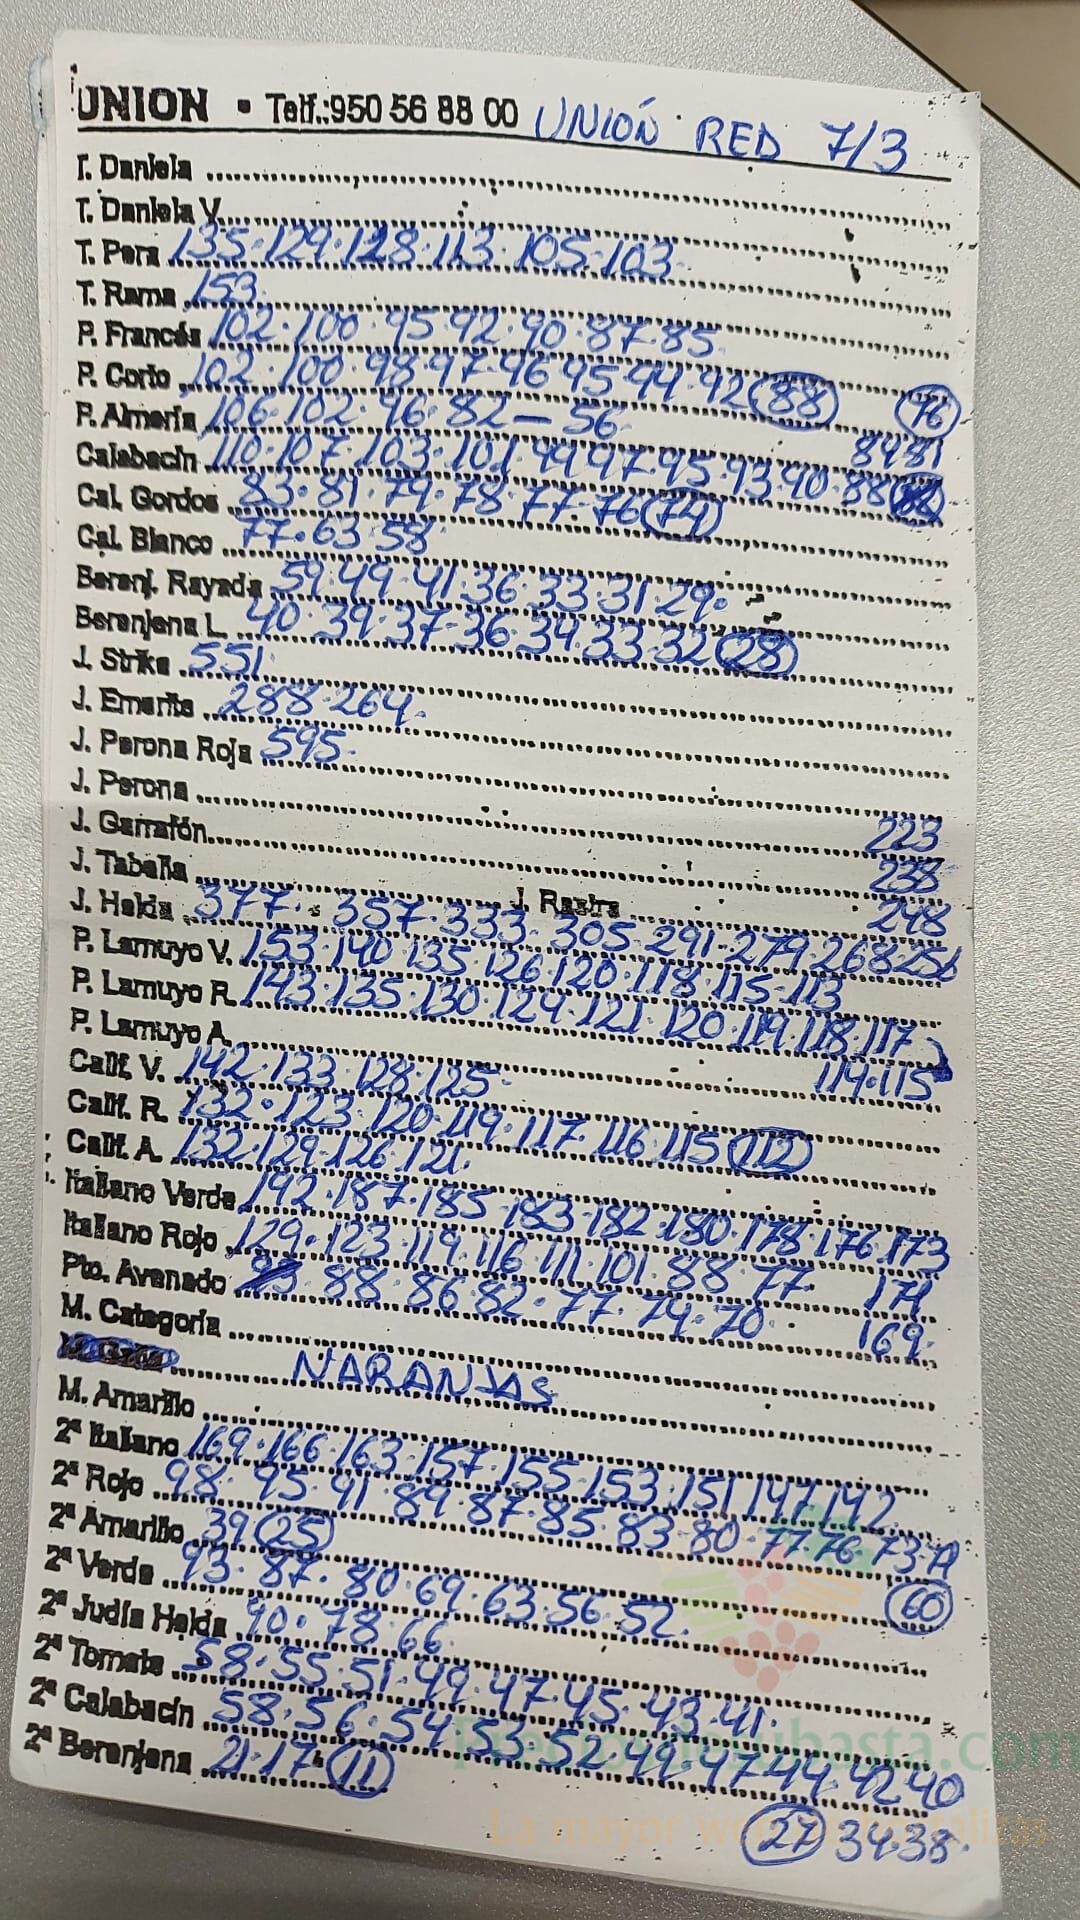 UNION • Telf.:950 56 88 00 UNIÓN RED 7/3
T. Daniela
T. Daniela V.
T. Pera 135·129·128·113·105·103
T. Rama 153
P. Francés 102·100·95·92·90·87·85
P. Corto 102·100·98·97·96·95·94·92 (88) (76)
P. Almería 106·102·96·82—56 84·81
Calabacín 110·107·103·101·99·97·95·93·90·88
Cal. Gordos 83·81·79·78·77·76 (74)
Cal. Blanco 77·63·58
Berenj. Rayada 59·49·41·36·33·31·29
Berenjena L. 40·39·37·36·34·33·32 (28)
J. Strike 551
J. Emerite 288·264
J. Perona Roja 595
J. Perona
J. Garrafón 223
J. Tabella 238
J. Rastra 248
J. Helda 377·357·333·305·291·279·268·256
P. Lamuyo V. 153·140·135·126·120·118·115·113
P. Lamuyo R. 143·135·130·124·121·120·119·118·117
P. Lamuyo A. 119·115
Calif. V. 142·133·128·125
Calif. R. 132·123·120·119·117·116·115 (112)
Calif. A. 132·129·126·121
Italiano Verde 192·187·185·183·182·180·178·176·173
Italiano Rojo 129·123·119·116·111·101·88·77 171
Pto. Avenado 88·86·82·77·74·70 169
M. Categoría
NARANJAS
M. Amarillo
2ª Italiano 169·166·163·157·155·153·151·147·142
2ª Rojo 98·95·91·89·87·85·83·80·77·76·73·71
2ª Amarillo 39 (25) (60)
2ª Verde 93·87·80·69·63·56·52
2ª Judía Helda 90·78·66
2ª Tomate 58·55·51·49·47·45·43·41
2ª Calabacín 58·56·54·53·52·49·47·44·42·40
2ª Berenjena 21·17·(11)
(27) 34·38